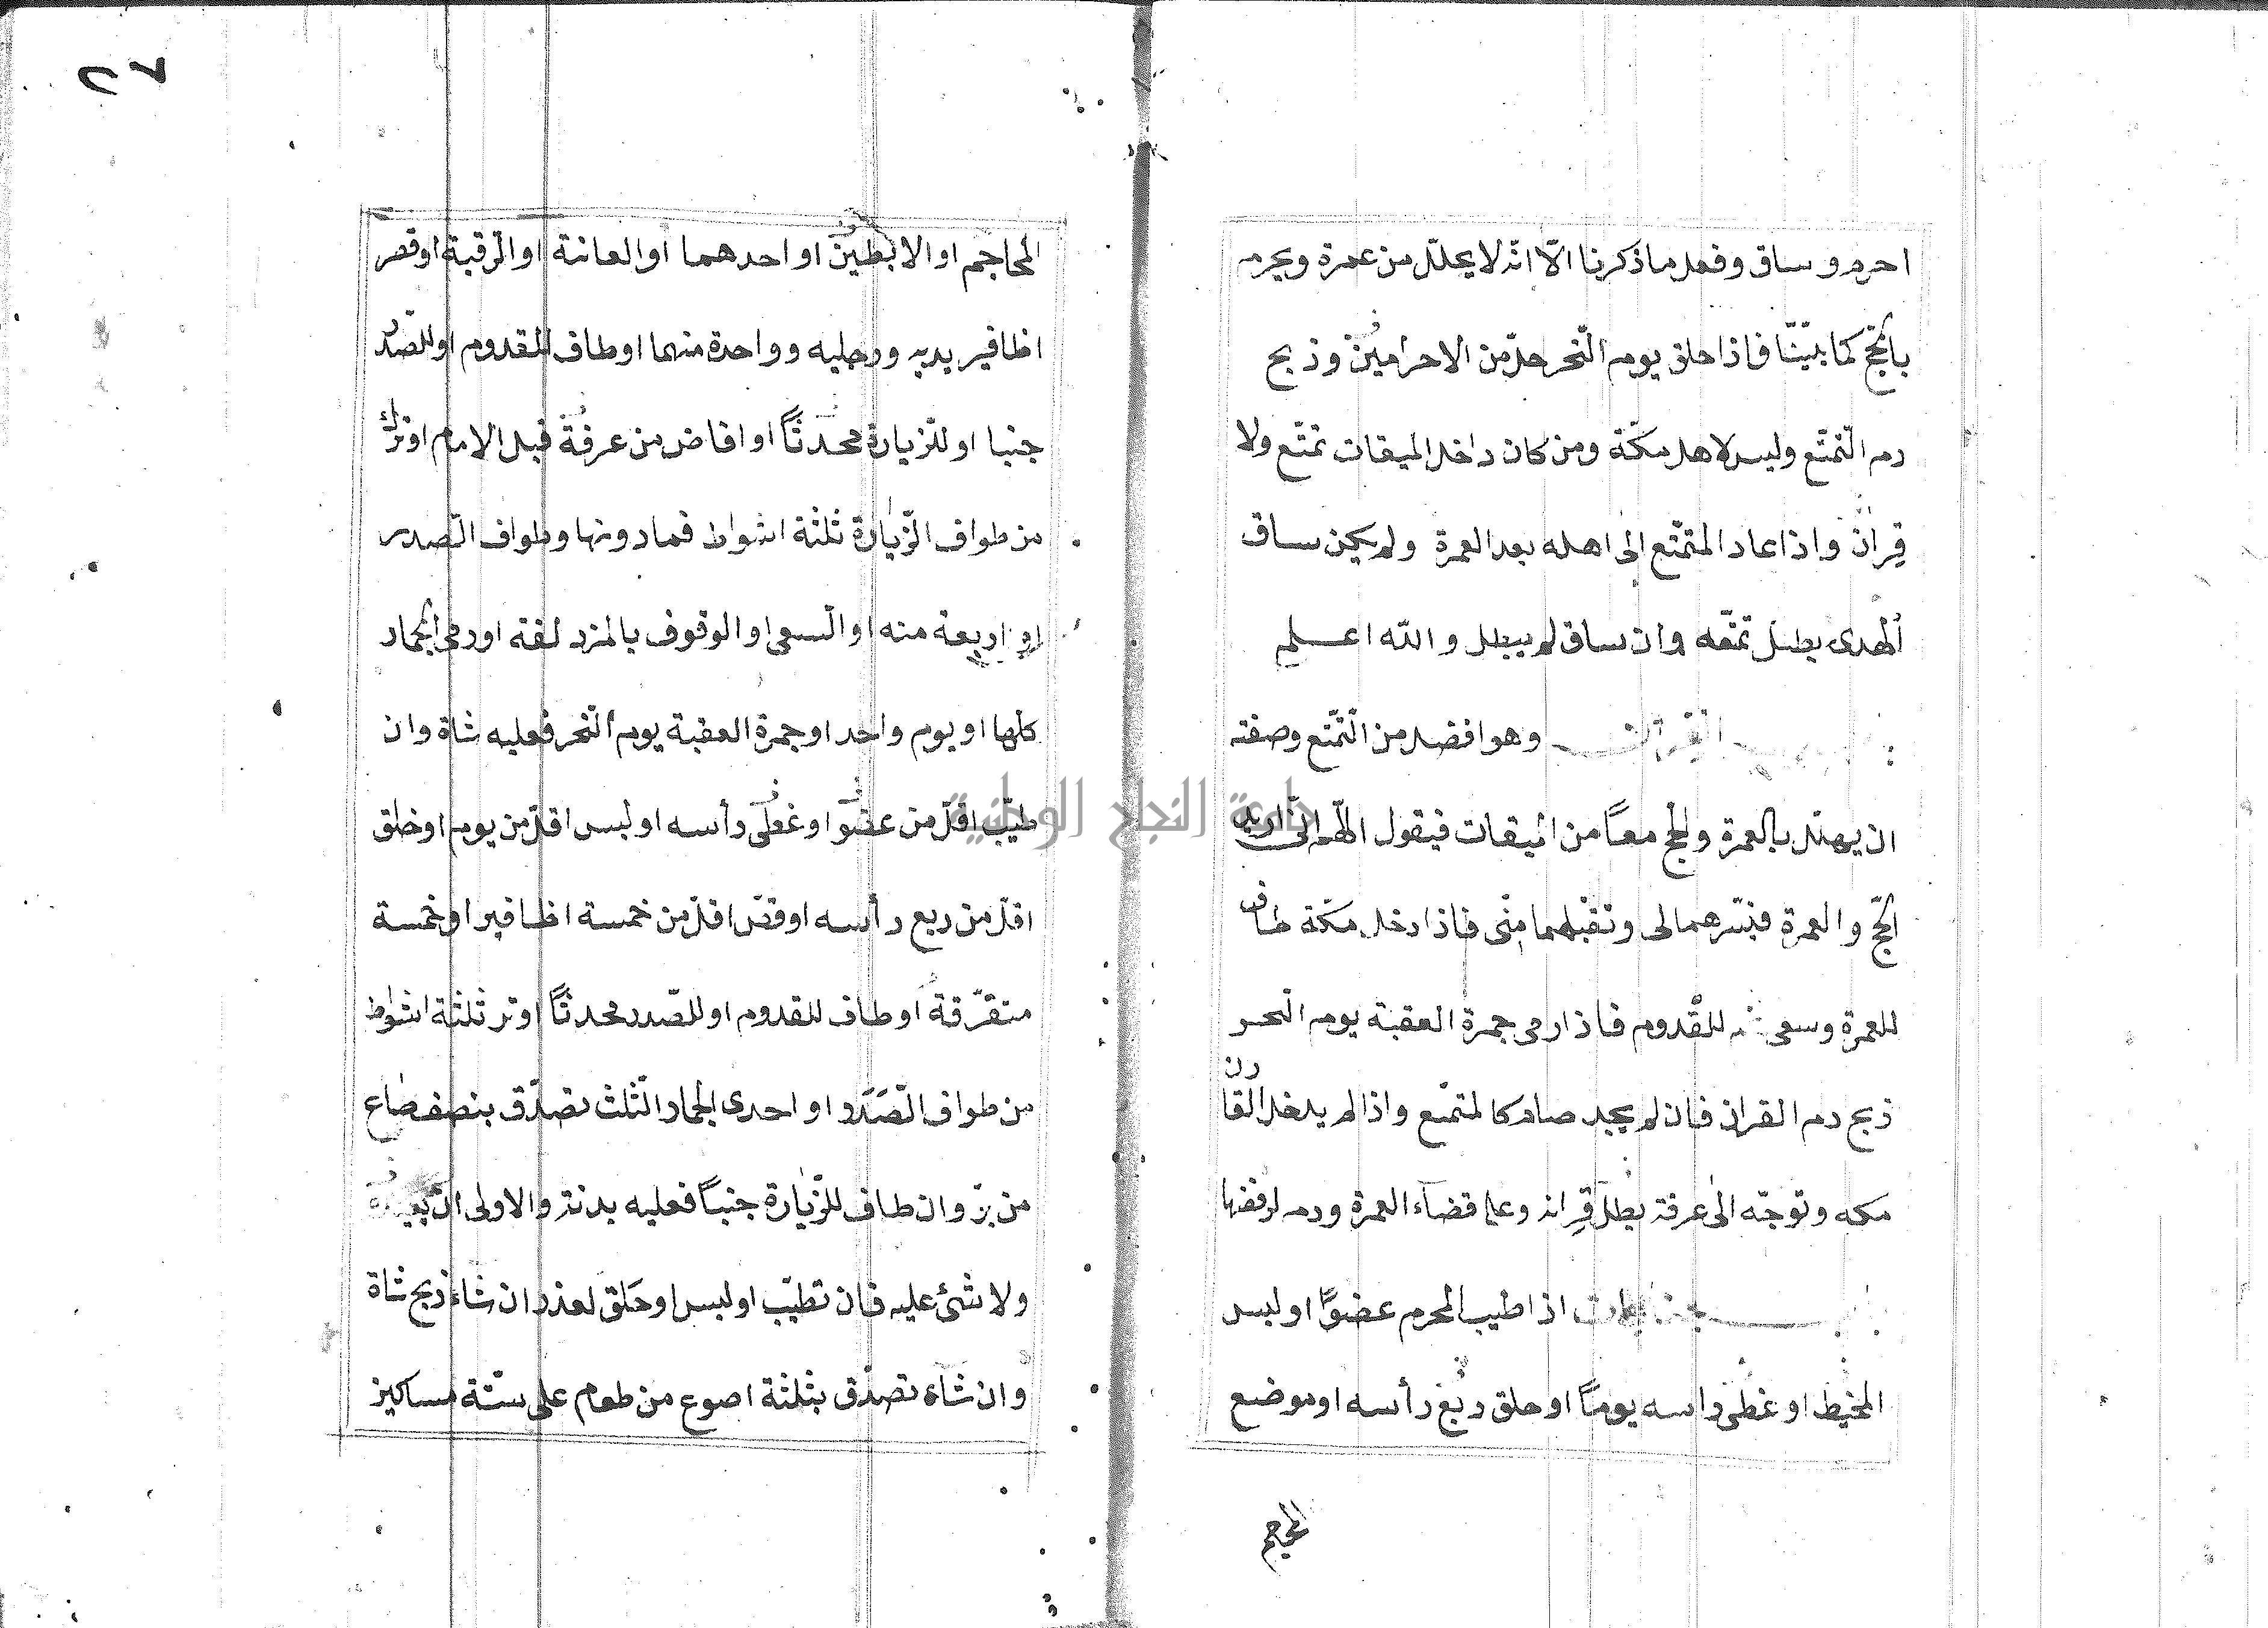 احرم وساق وفعل ما ذكرنا الّا انّه لا يحلّل من عمرة ويحرم
بالحجّ كما بيّنّا فاذا حلق يوم النّحر حلّ من الاحرامين وذبح
دم التّمتّع وليس لاهل مكّة ومن كان داخل الميقات تمتّع ولا
قِران واذا عاد المتمتّع الى اهله بعد العمرة ولم يكن ساق
الهدى بطل تمتّعه وان ساق لم يبطل والله اعلم
القران وهو افضل من التّمتّع وصفته
ان يهلّ بالعمرة والحج معاً من الميقات فيقول اللّهم انّى اريد
الحجّ والعمرة فيسّرهما لى وتقبّلهما منّى فاذا دخل مكّة طاف
للعمرة وسعى للقدوم فاذا رمى جمرة العقبة يوم النحر
ذبح دم القران فان لم يجد صام كالمتمتّع واذا لم يدخل القارن
مكه وتوجّه الى عرفة بطل قِرانه وعليه قضاء العمرة ودم لرفضها
جنايات اذا طيب المحرم عضوًا او لبس
المخيط او غطى راسه يومًا او حلق ربع رأسه او موضع
المحاجم
المحاجم او الابطين او احدهما او العانة او الرّقبة او قص
اظافير يديه ورجليه وواحدة منهما او طاف للقدوم او للصّدر
جنبا او للزيارة محدثًا او افاض من عرفة قبل الامام او ترك
من طواف الزّيارة ثلثة اشواط فما دونها وطواف الصّدر
او اربعة منه او السعى او الوقوف بالمزدلفة او رمى الجمار
كلها او يوم واحد او جمرة العقبة يوم النّحر فعليه شاة وان
طيّب اقلّ من عضو او غطى رأسه او لبس اقلّ من يوم او حلق
اقلّ من ربع رأسه او قصّ اقلّ من خمسة اظافير او خمسة
متفرّقة او طاف للقدوم او للصّدر محدثًا او تر ثلثة اشواط
من طواف الصّدر او احدى الجمار الثّلث تصدّق بنصف صاع
من برّ وان طاف للزّيارة جنباً فعليه بدنة والاولى ان يعيده
ولا شئ عليه فان تطيّب او لبس او حَلق لعذر ان شاء ذبح شاة
وان شاء تصدّق بثلثة اصوع من طعام على ستّة مساكين
جامعة النجاح الوطنية